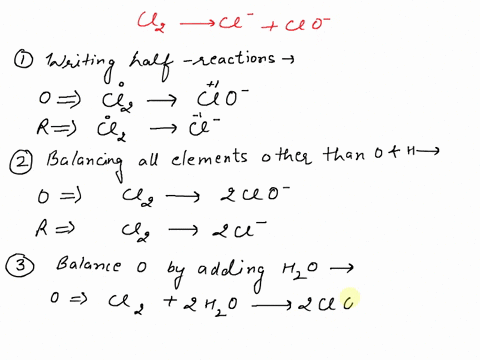 Cl₂ ⟶ Cl⁻ + ClO⁻
① Writing half-reactions →
O ⇒ Cl₂⁰ ⟶ Cl⁺¹O⁻
R ⇒ Cl₂⁰ ⟶ Cl⁻¹⁻
② Balancing all elements other than O + H ⟶
O ⇒ Cl₂ ⟶ 2ClO⁻
R ⇒ Cl₂ ⟶ 2Cl⁻
③ Balance O by adding H₂O ⟶
O ⇒ Cl₂ + 2H₂O ⟶ 2Cl